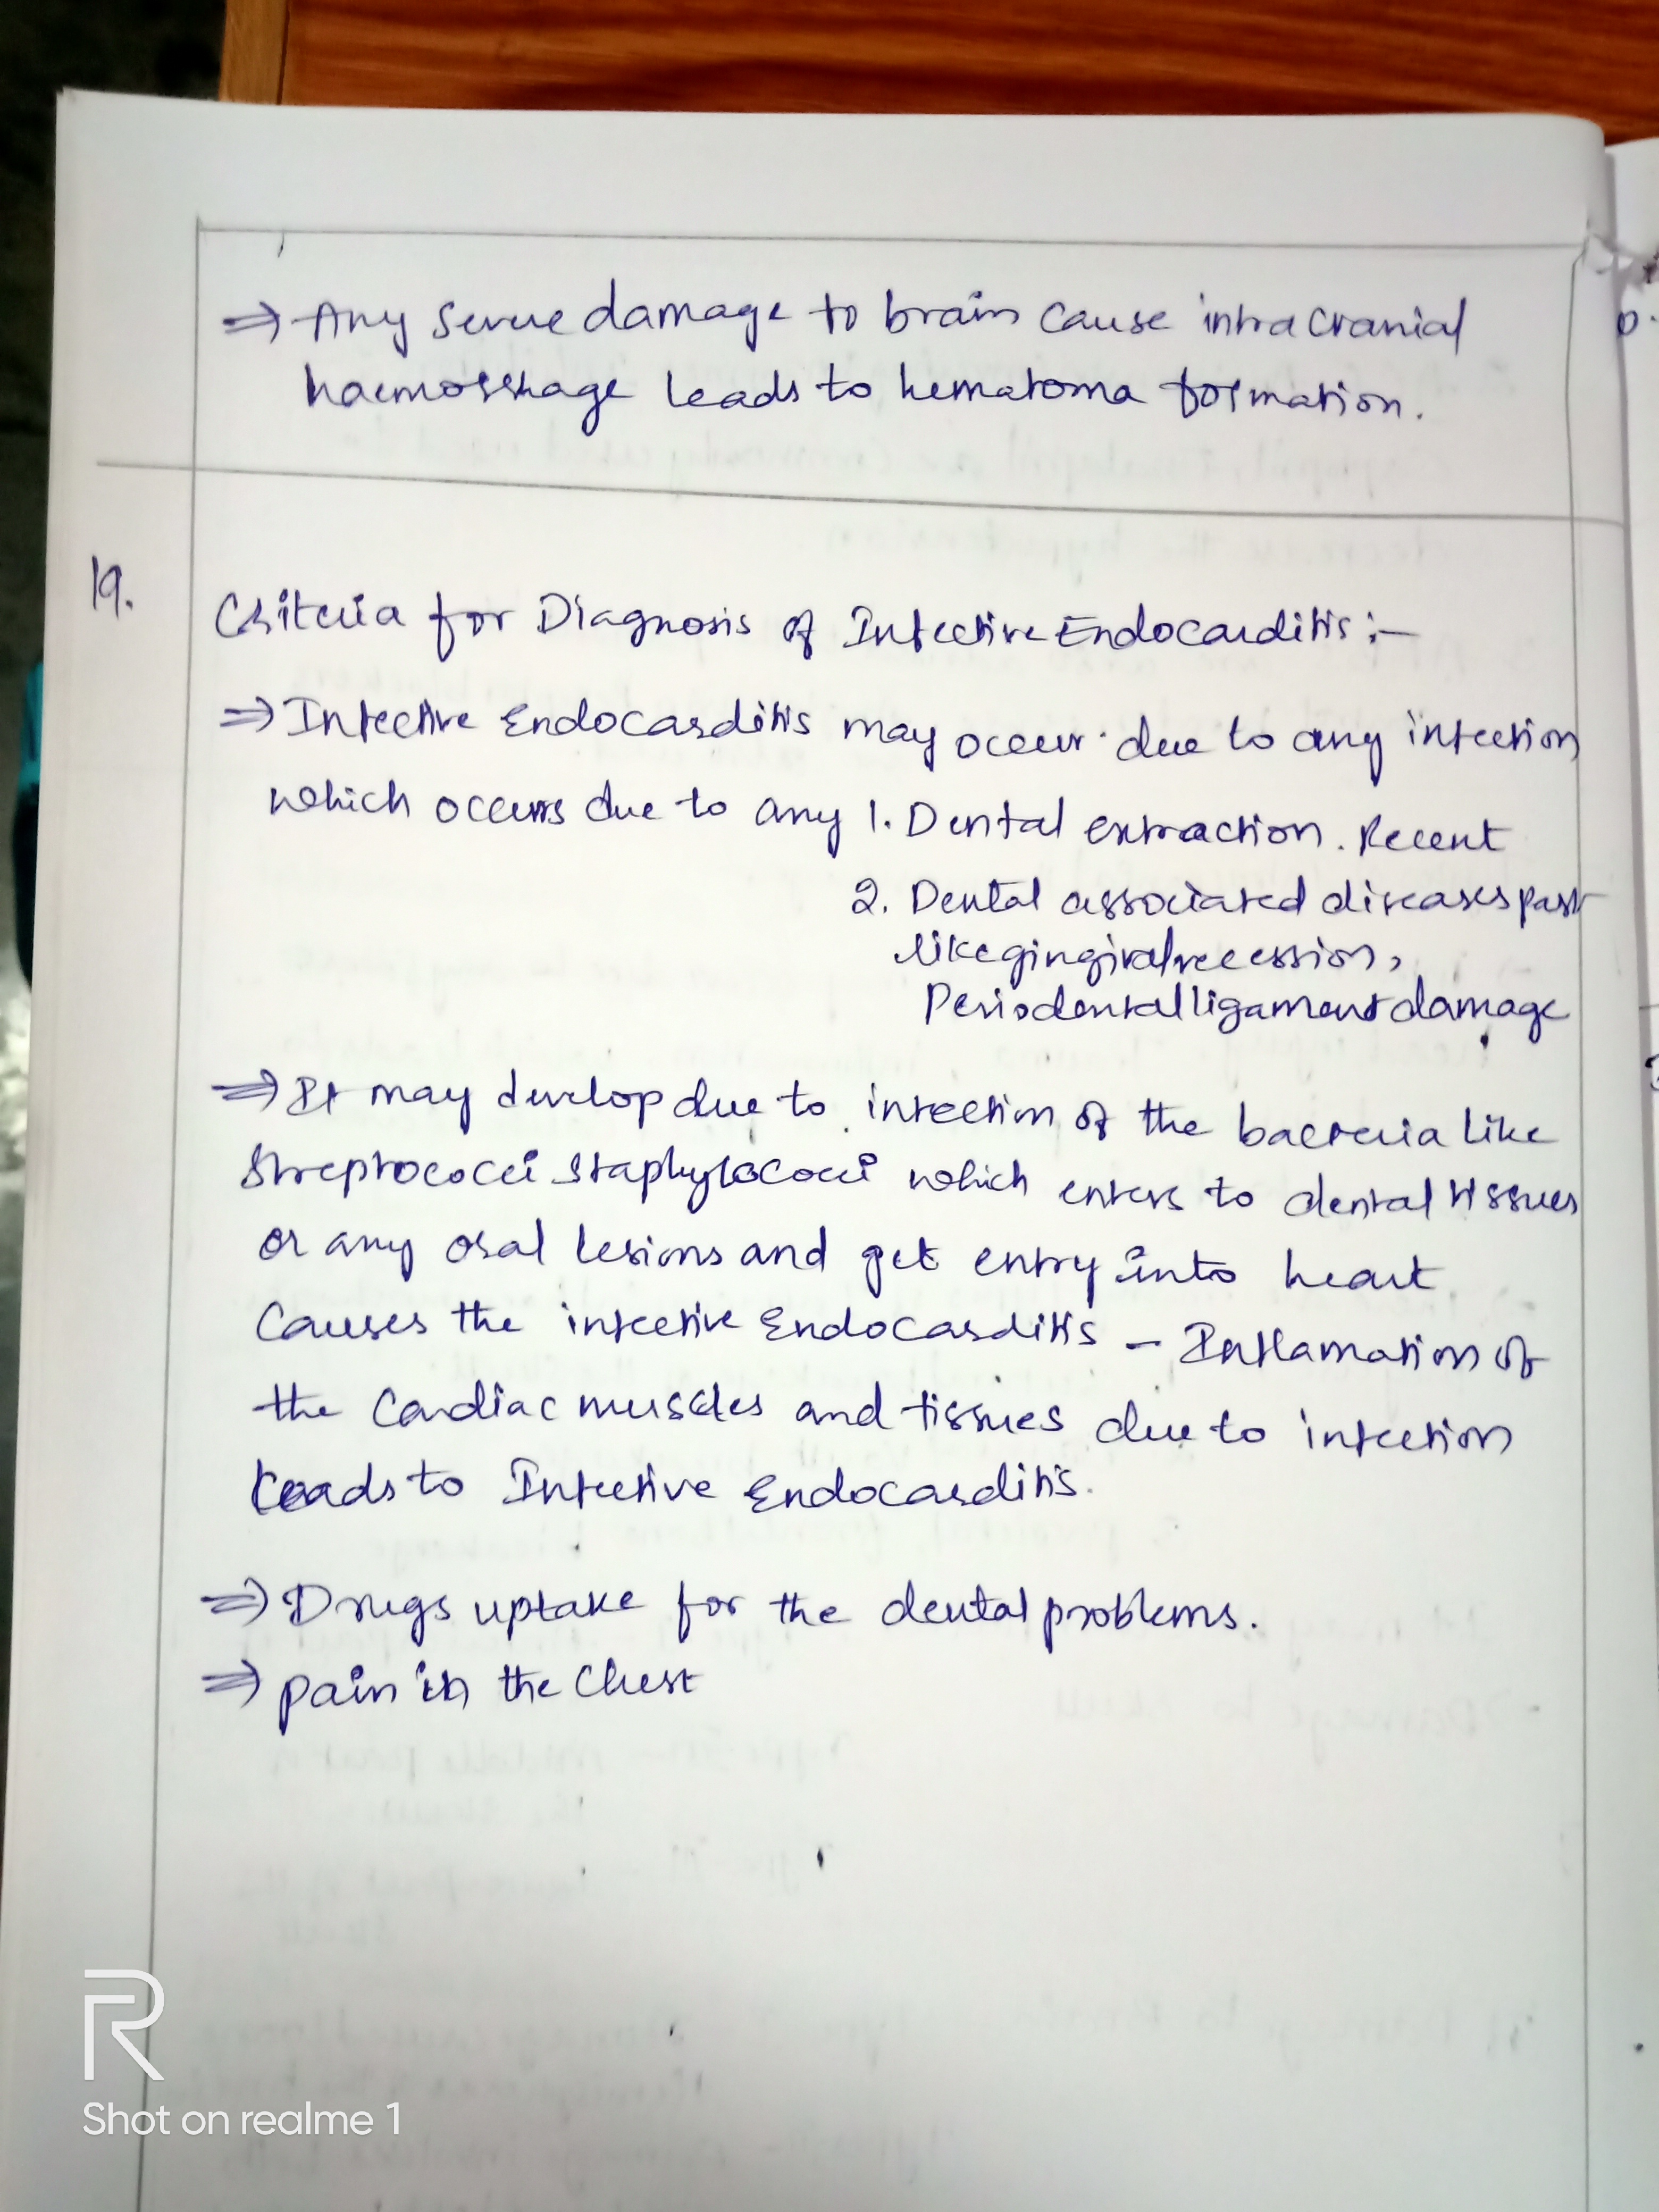 ⇒ Any severe damage to brain cause intracranial
haemorrhage leads to hematoma formation.
19.
Criteria for Diagnosis of Infective Endocarditis :-
⇒ Infective Endocarditis may occur due to any infection
which occurs due to any 1. Dental extraction. Recent
2. Dental associated diseases past
like gingival recession,
Periodontal ligament damage
⇒ It may develop due to infection of the bacteria like
Streptococci Staphylococci which enters to dental tissues
or any oral lesions and get entry into heart
Causes the infective Endocarditis - Inflamation of
the Cardiac muscles and tissues due to infection
leads to Infective Endocarditis.
⇒ Drugs uptake for the dental problems.
⇒ Pain in the Chest
R
Shot on realme 1